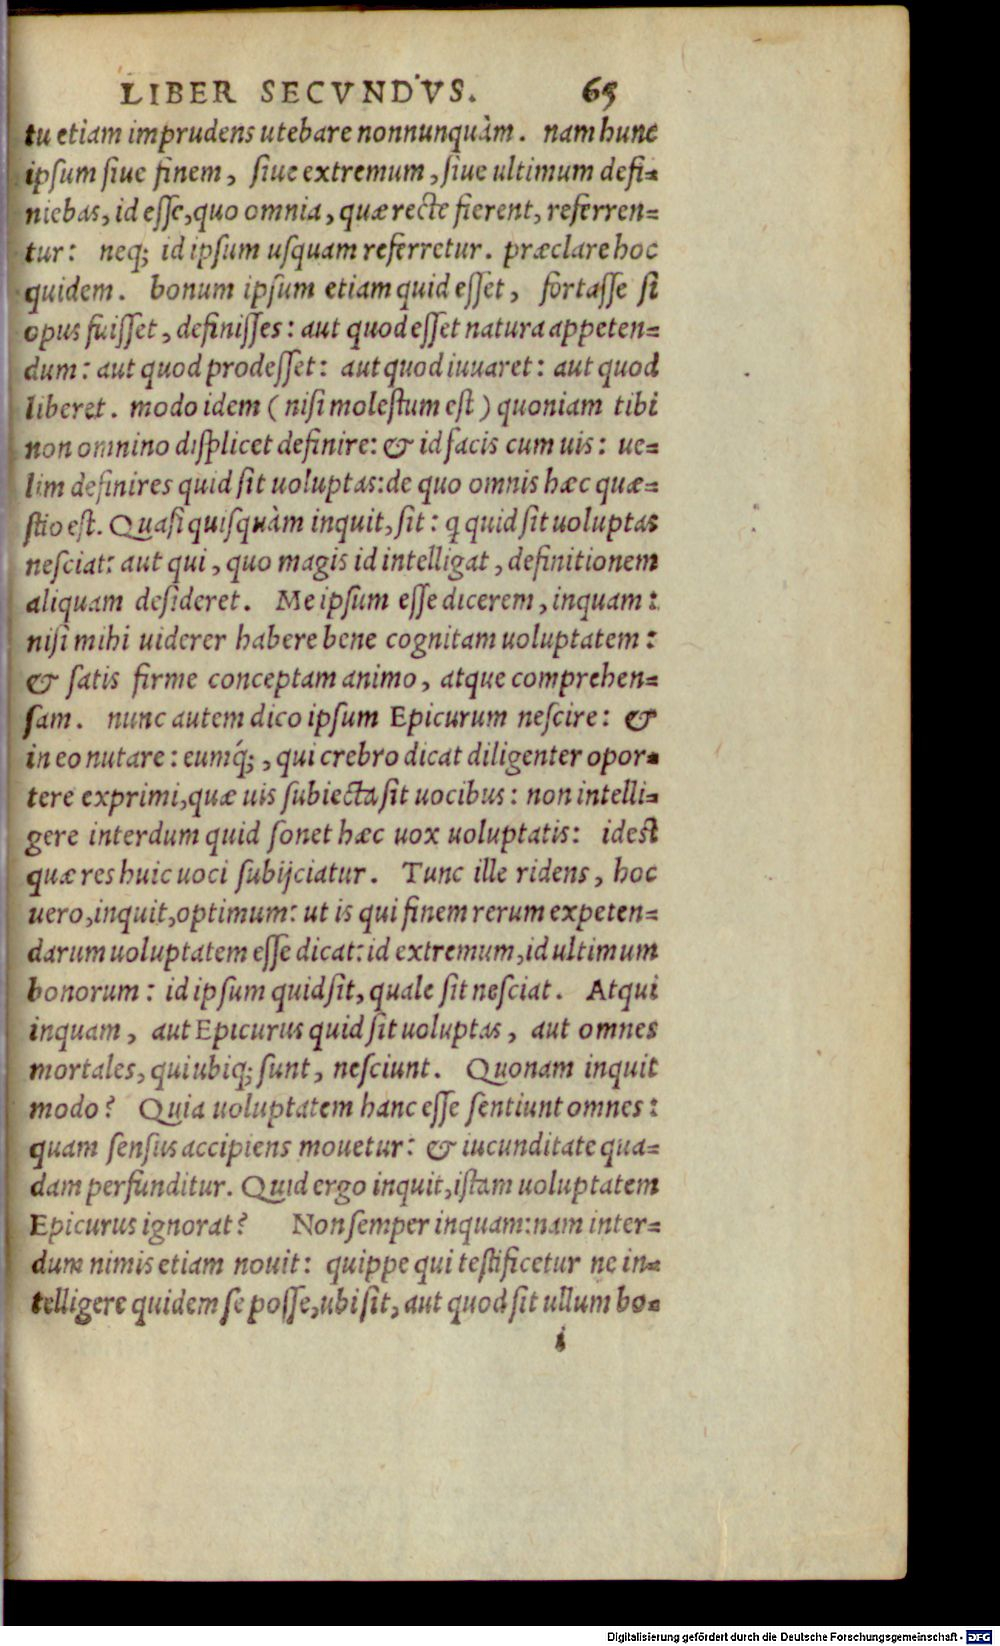 LIBER SECVNDVS. 65
tu etiam imprudens utebare nonnunquàm. nam hunc
ipsum siue finem, siue extremum, siue ultimum defi-
niebas, id esse, quo omnia, quæ recte fierent, referren-
tur: neq; id ipsum usquam referretur. præclare hoc
quidem. bonum ipsum etiam quid esset, fortasse si
opus fuisset, definisses: aut quod esset natura appeten-
dum: aut quod prodesset: aut quod iuuaret: aut quod
liberet. modo idem (nisi molestum est) quoniam tibi
non omnino displicet definire: & id facis cum uis: ue-
lim definires quid sit uoluptas: de quo omnis hæc quæ-
stio est. Quasi quisquàm inquit, sit: q quid sit uoluptas
nesciat: aut qui, quo magis id intelligat, definitionem
aliquam desideret. Me ipsum esse dicerem, inquam:
nisi mihi uiderer habere bene cognitam uoluptatem:
& satis firme conceptam animo, atque comprehen-
sam. nunc autem dico ipsum Epicurum nescire: &
in eo nutare: eumq́;, qui crebro dicat diligenter opor-
tere exprimi, quæ uis subiecta sit uocibus: non intelli-
gere interdum quid sonet hæc uox uoluptatis: idest
quæ res huic uoci subijciatur. Tunc ille ridens, hoc
uero, inquit, optimum: ut is qui finem rerum expeten-
darum uoluptatem esse dicat: id extremum, id ultimum
bonorum: id ipsum quid sit, quale sit nesciat. Atqui
inquam, aut Epicurus quid sit uoluptas, aut omnes
mortales, qui ubiq; sunt, nesciunt. Quonam inquit
modo? Quia uoluptatem hanc esse sentiunt omnes:
quam sensus accipiens mouetur: & iucunditate qua-
dam perfunditur. Quid ergo inquit, istam uoluptatem
Epicurus ignorat? Non semper inquam: nam inter-
dum nimis etiam nouit: quippe qui testificetur ne in-
telligere quidem se posse, ubi sit, aut quod sit ullum bo-
i
Digitalisierung gefördert durch die Deutsche Forschungsgemeinschaft - DFG